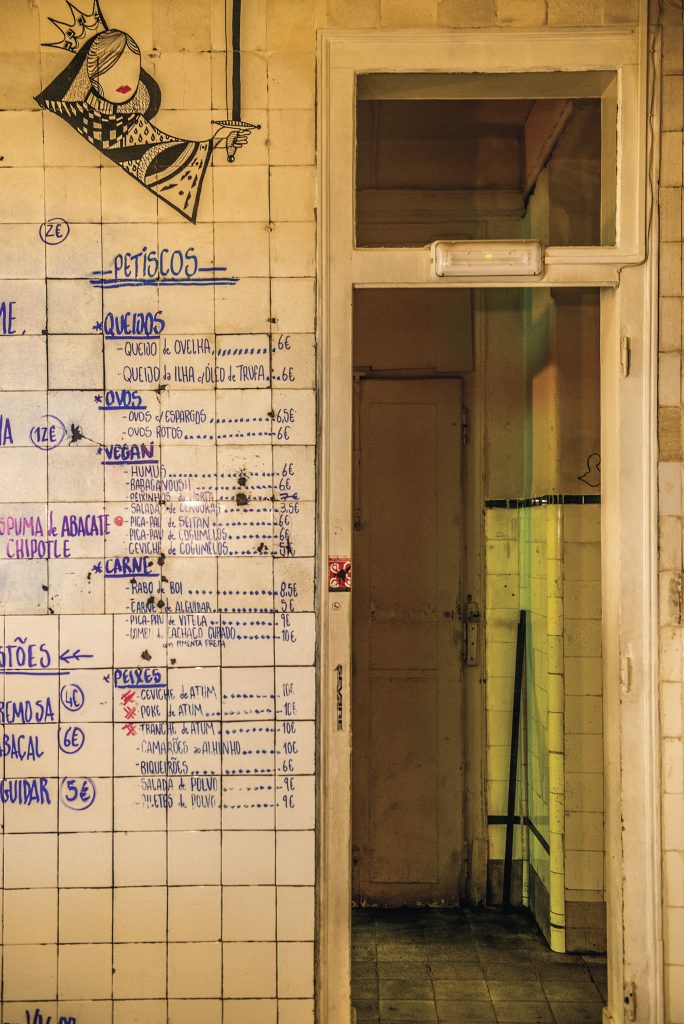 2€
PETISCOS
*QUEIJOS
-QUEIJO de OVELHA........6€
-QUEIJO da ILHA c/ÓLEO de TRUFA..6€
*OVOS
-OVOS c/ESPARGOS........6,5€
-OVOS ROTOS........6€
12€
*VEGAN
-HUMUS........6€
-BABAGANOUSH........6€
-PEIXINHOS da HORTA........7€
-SALADA de CENOURAS........3,5€
-PICA-PAU de SEITAN........6€
-PICA-PAU de COGUMELOS........6€
-CEVICHE de COGUMELOS........5€
SPUMA de ABACATE
CHIPOTLE
*CARNE
-RABO de BOI........8,5€
-CARNE de ALGUIDAR........5€
-PICA-PAU de VITELA........9€
-LOMBO de CACHAÇO CURADO........10€
com PIMENTA PRETA
STÕES
*PEIXES
-CEVICHE de ATUM........10€
-POKE de ATUM........10€
-TRANCHE de ATUM........10€
-CAMARÕES ao ALHINHO........10€
-BIQUEIRÕES........6€
-SALADA de POLVO........9€
-FILETES de POLVO........9€
REMOSA 4€
ABAÇAL 6€
GUIDAR 5€